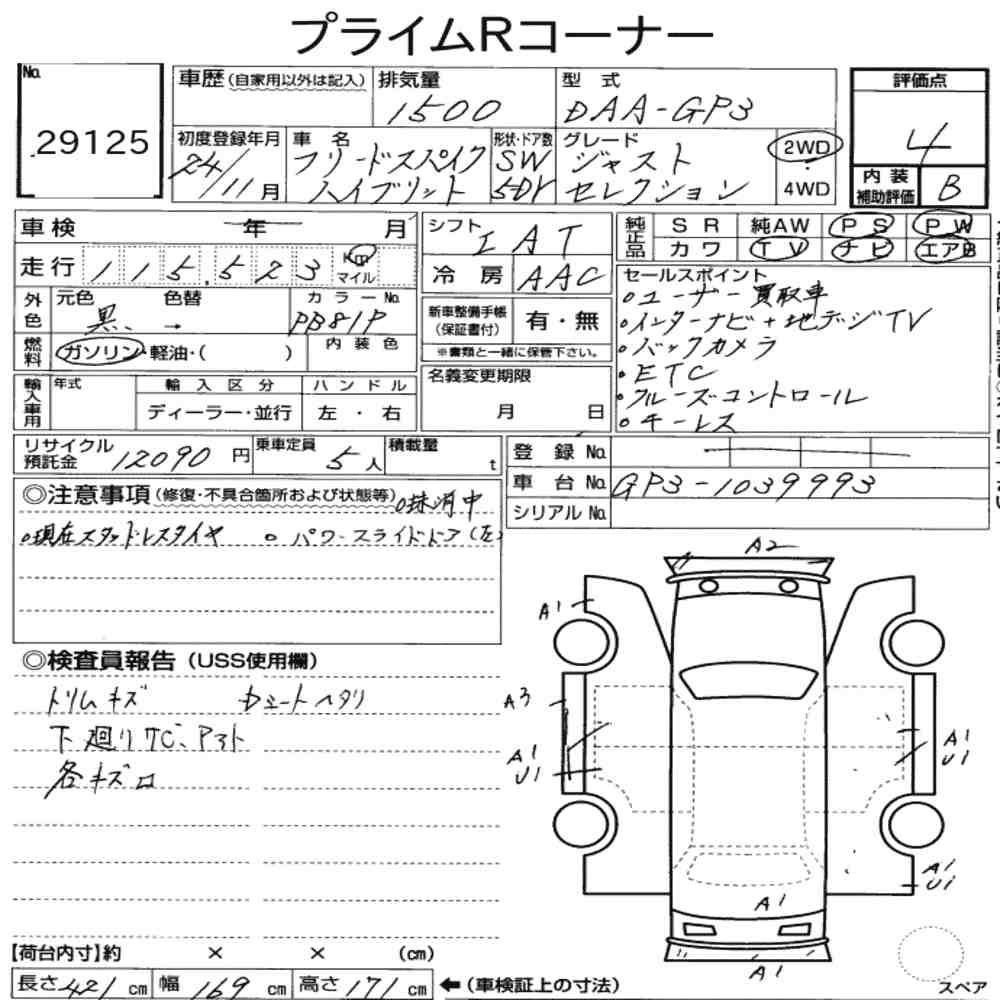 プライムRコーナー
No. 29125
車歴(自家用以外は記入) 排気量 1500 型式 DAA-GP3
評価点 4
内装補助評価 B
初度登録年月 24/11月 車名 フリードスパイク ハイブリット 形状・ドア数 SW 5DY グレード ジャスト セレクション 2WD 4WD
車検 年 月
走行 115,523 Km マイル
シフト IAT
冷房 AAC
純正品 SR 純AW PS PW
カワ TV ナビ エアB
外色 元色 黒 色替 → カラーNo. PB81P
燃料 ガソリン・軽油・( ) 内装色
新車整備手帳(保証書付) 有・無
※書類と一緒に保管下さい。
セールスポイント
○ユーザー買取車
○インターナビ+地デジTV
○バックカメラ
○ETC
○クルーズコントロール
○キーレス
輸入車用 年式 輸入区分 ハンドル
ディーラー・並行 左・右
名義変更期限
月 日
リサイクル預託金 12090円 乗車定員 5人 積載量 t
登録No.
車台No. GP3-1039993
シリアルNo.
◎注意事項(修復・不具合箇所および状態等) ○抹消中
○現在スタッドレスタイヤ ○パワースライドドア(左)
◎検査員報告(USS使用欄)
トリムキズ Dシートヘタリ
下廻りサC、Pスト
各キズロ
A2
A1
A3
A1
U1
A1
U1
A1
U1
A1
A1
スペア
【荷台内寸】約 × × (cm)
長さ 421cm 幅 169cm 高さ 171cm ←(車検証上の寸法)